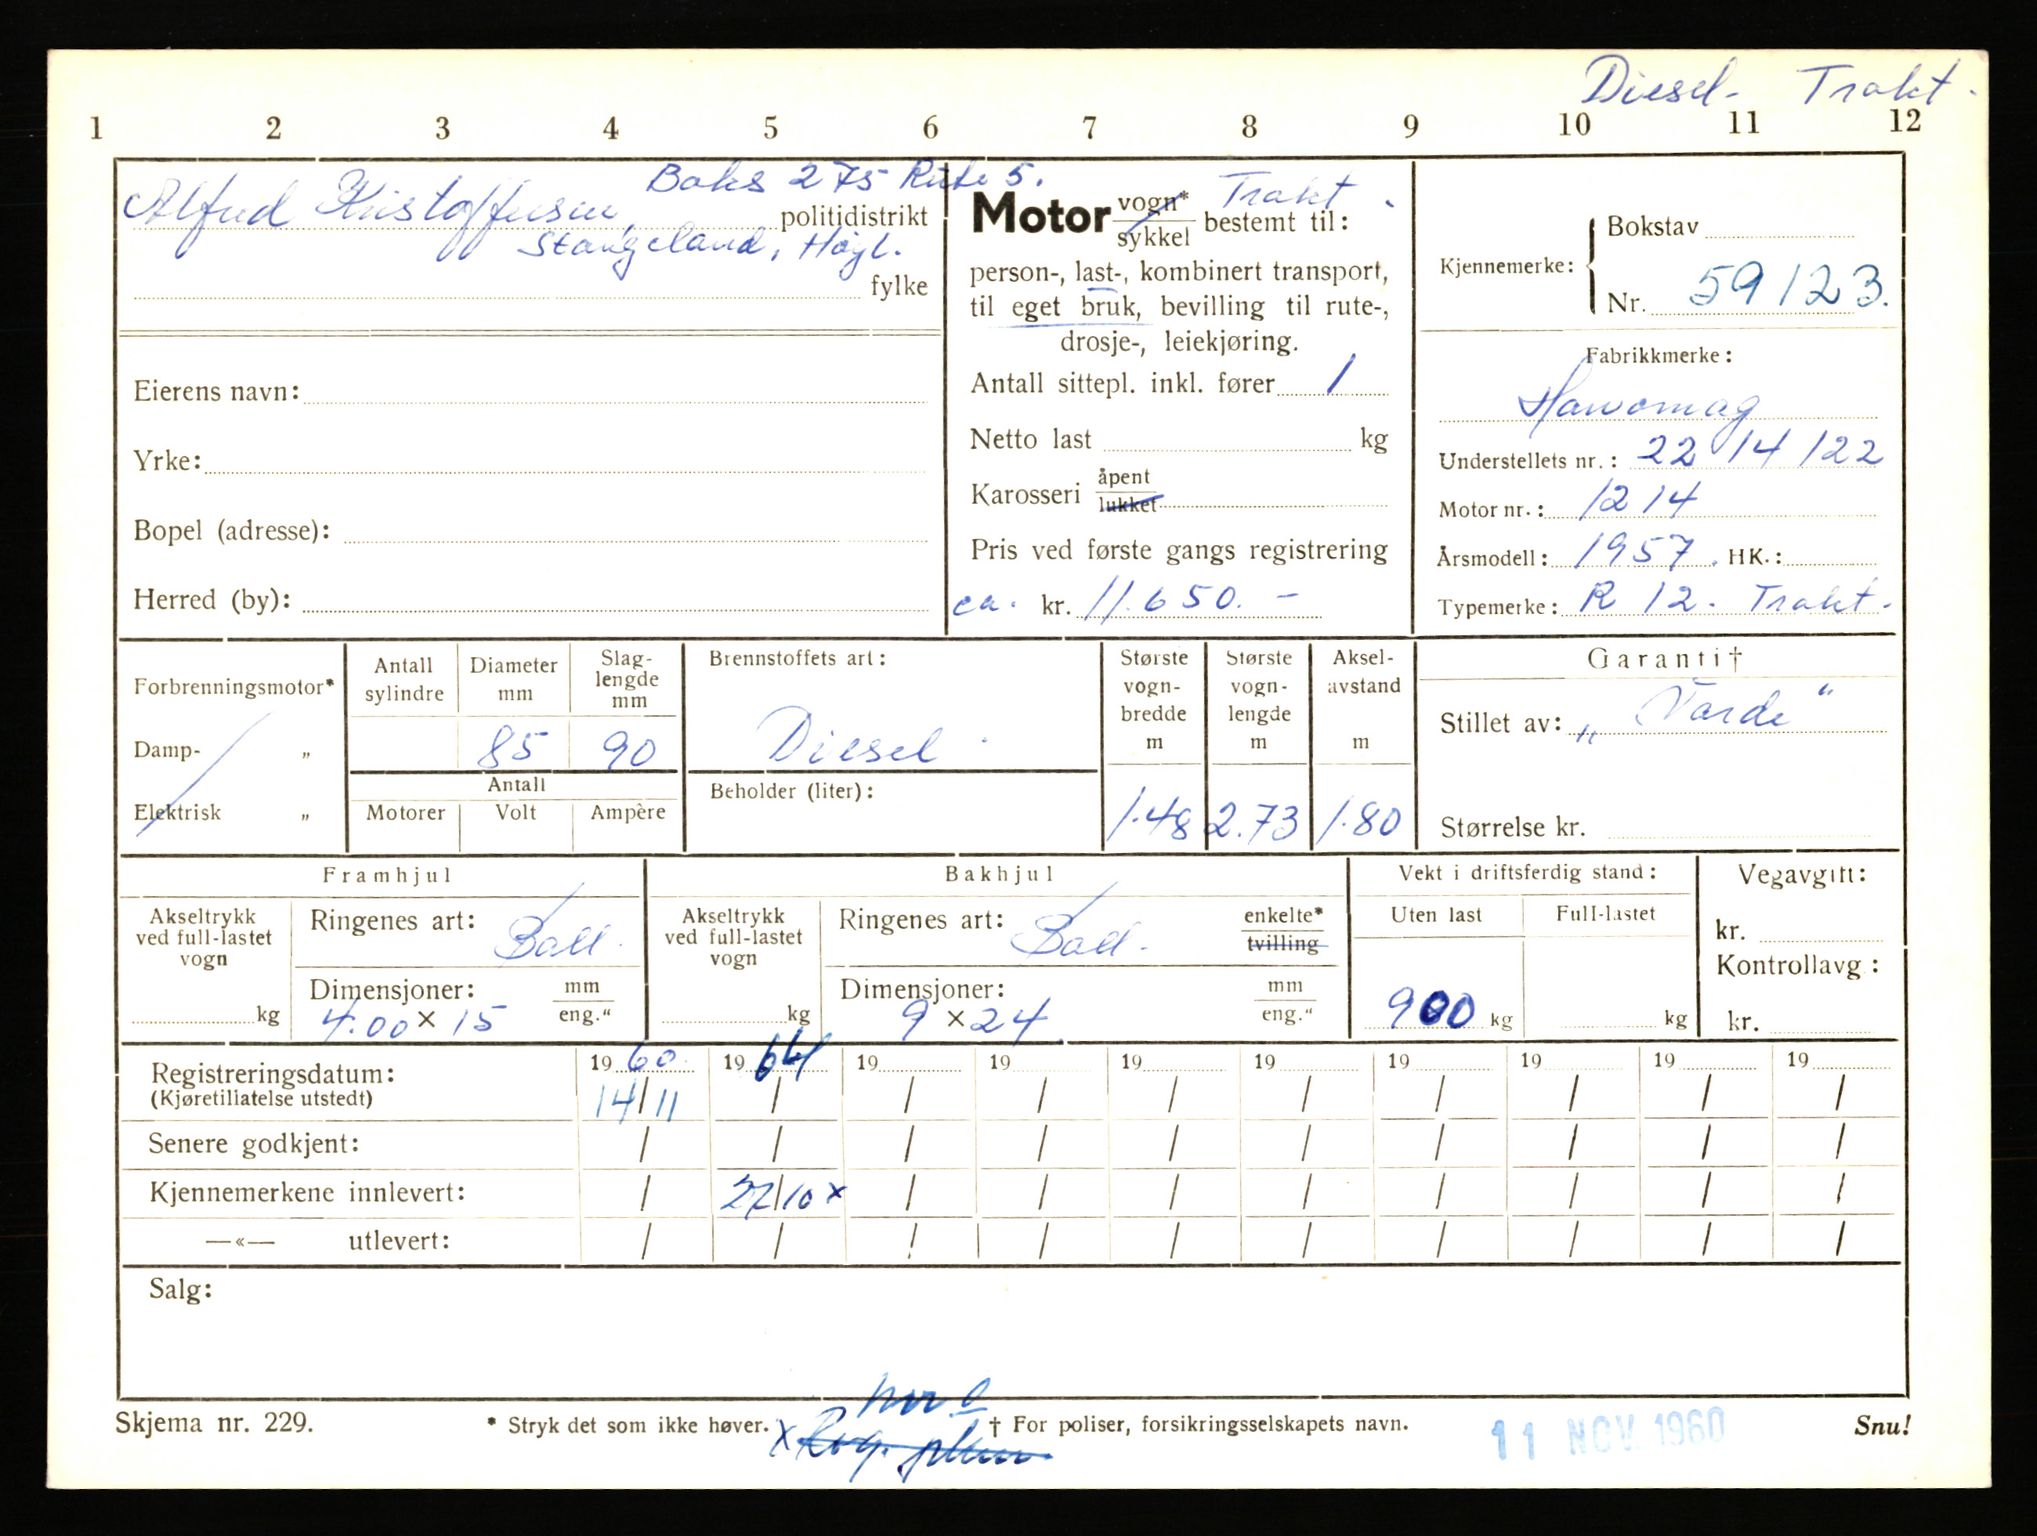 Diesel- Trakt.
1 2 3 4 5 6 7 8 9 10 11 12
Boks 275 Rute 5.
Alfred Kristoffersen, politidistrikt
Stangeland, Høgl.
fylke
Eierens navn:
Yrke:
Bopel (adresse):
Herred (by):
Motor vogn* / sykkel bestemt til: Trakt.
person-, last-, kombinert transport,
til eget bruk, bevilling til rute-,
drosje-, leiekjøring.
Antall sittepl. inkl. fører 1
Netto last kg
Karosseri åpent / lukket
Pris ved første gangs registrering
ca. kr. 11.650.-
Kjennemerke: Bokstav
Nr. 59123.
Fabrikkmerke:
Hanomag
Understellets nr.: 22 14 122
Motor nr.: 1214
Årsmodell: 1957. HK.:
Typemerke: R 12. Trakt.
Forbrenningsmotor*
Damp- „
Elektrisk „
Antall sylindre
Diameter mm
Slag-lengde mm
85 90
Antall
Motorer Volt Ampère
Brennstoffets art:
Diesel.
Beholder (liter):
Største vogn-bredde m
Største vogn-lengde m
Aksel-avstand m
1.48 2.73 1.80
Garanti†
Stillet av: „Varde“
Størrelse kr.
Framhjul
Akseltrykk ved full-lastet vogn
kg
Ringenes art: Ball.
Dimensjoner: mm / eng."
4.00 × 15
Bakhjul
Akseltrykk ved full-lastet vogn
kg
Ringenes art: Ball. enkelte* / tvilling
Dimensjoner: mm / eng."
9 × 24
Vekt i driftsferdig stand:
Uten last Full-lastet
900 kg kg
Vegavgift:
kr.
Kontrollavg:
kr.
19 60 19 64 19 19 19 19 19 19 19 19
Registreringsdatum: 14/11 / / / / / / / / /
(Kjøretillatelse utstedt)
Senere godkjent: / / / / / / / / / /
Kjennemerkene innlevert: / 27/10 x / / / / / / / /
—«— utlevert: / / / / / / / / / /
Salg:
Skjema nr. 229.
* Stryk det som ikke høver.
x
† For poliser, forsikringsselskapets navn.
11 NOV 1960
Snu!